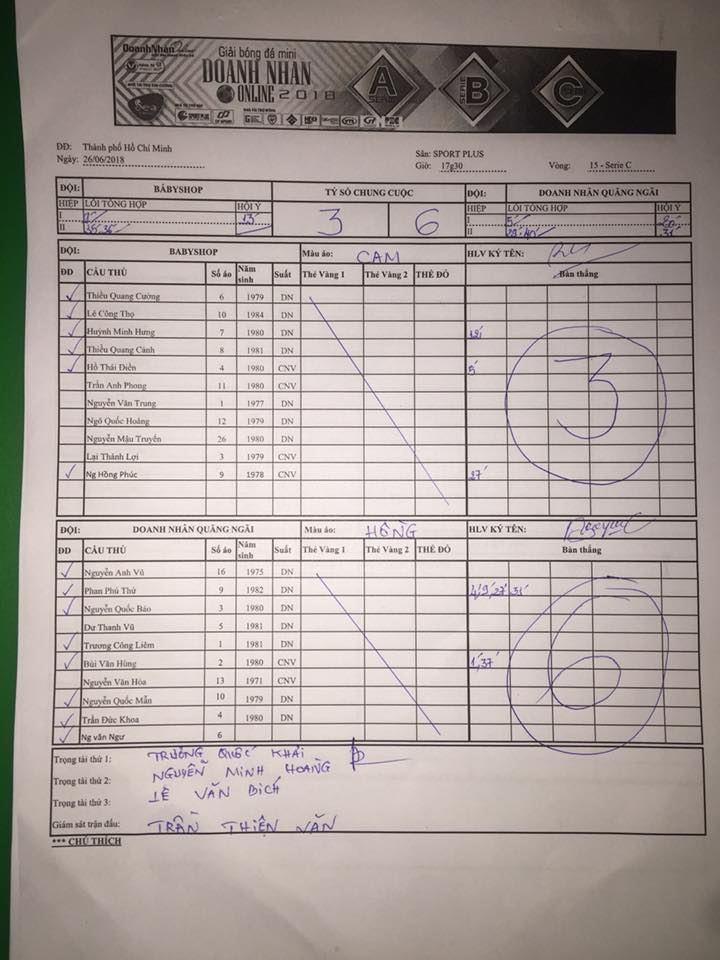 DoanhNhân
Giải bóng đá mini
DOANH NHÂN
ONLINE 2018
A
SERIE
B
SERIE
C
SERIE
ĐĐ: Thành phố Hồ Chí Minh
Sân: SPORT PLUS
Ngày: 26/06/2018 Giờ: 17g30 Vòng: 15 - Serie C
ĐỘI: BABYSHOP TỶ SỐ CHUNG CUỘC ĐỘI: DOANH NHÂN QUẢNG NGÃI
HIỆP LỖI TỔNG HỢP HỘI Ý 3 6 HIỆP LỖI TỔNG HỢP HỘI Ý
I I 5'
II II
ĐỘI: BABYSHOP Màu áo: CAM HLV KÝ TÊN:
ĐD CẦU THỦ Số áo Năm sinh Suất Thẻ Vàng 1 Thẻ Vàng 2 THẺ ĐỎ Bàn thắng
Thiều Quang Cường 6 1979 DN
Lê Công Thọ 10 1984 DN
Huỳnh Minh Hưng 7 1980 DN
Thiều Quang Cảnh 8 1981 DN
Hồ Thái Điền 4 1980 CNV 5'
Trần Anh Phong 11 1980 CNV
Nguyễn Văn Trung 1 1977 DN
Ngô Quốc Hoàng 12 1979 DN
Nguyễn Mậu Truyền 26 1980 DN
Lại Thành Lợi 3 1979 CNV
Ng Hồng Phúc 9 1978 CNV 27'
3
ĐỘI: DOANH NHÂN QUẢNG NGÃI Màu áo: HỒNG HLV KÝ TÊN:
ĐD CẦU THỦ Số áo Năm sinh Suất Thẻ Vàng 1 Thẻ Vàng 2 THẺ ĐỎ Bàn thắng
Nguyễn Anh Vũ 16 1975 DN
Phan Phú Thứ 9 1982 DN 4',9',27',31'
Nguyễn Quốc Bảo 3 1980 DN
Dư Thanh Vũ 5 1981 DN
Trương Công Liêm 1 1981 DN
Bùi Văn Hùng 2 1980 CNV 1',37'
Nguyễn Văn Hòa 13 1971 CNV
Nguyễn Quốc Mẫn 10 1979 DN
Trần Đức Khoa 4 1980 DN
Ng văn Ngư 6
6
Trọng tài thứ 1: TRƯƠNG QUỐC KHẢI
Trọng tài thứ 2: NGUYỄN MINH HOÀNG
Trọng tài thứ 3: LÊ VĂN BÍCH
Giám sát trận đấu: TRẦN THIỆN VĂN
*** CHÚ THÍCH